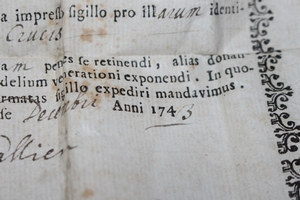 a impresso sigillo pro illarum identi-
Crucis
am penes se retinendi, alias donan
delium venerationi exponendi. In quo-
rmatas sigillo expediri mandavimus.
se Anni 1743
allier